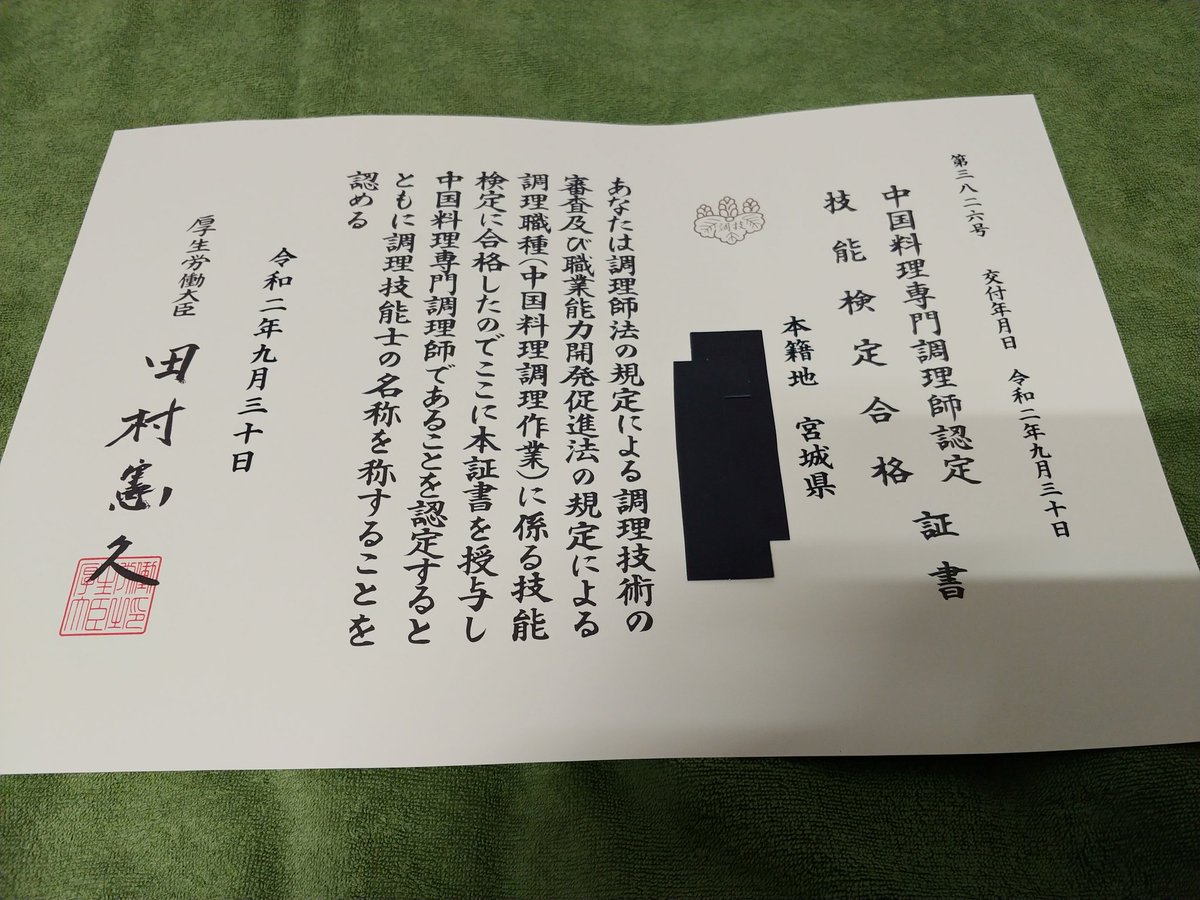 第三八二六号　交付年月日　令和二年九月三十日
中国料理専門調理師認定
技能検定合格
証書
本籍地　宮城県
調技
あなたは調理師法の規定による調理技術の
審査及び職業能力開発促進法の規定による
調理職種（中国料理調理作業）に係る技能
検定に合格したのでここに本証書を授与し
中国料理専門調理師であることを認定すると
ともに調理技能士の名称を称することを
認める
令和二年九月三十日
厚生労働大臣　田村憲久